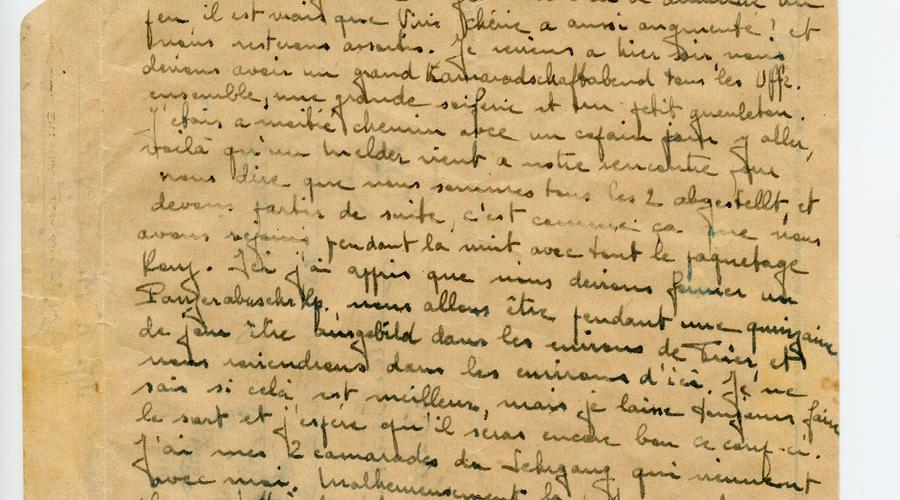 feu il est vrai que Vivi chérie a aussi augmenté! et
nous resterons assortis. Je reviens a hier soir nous
devions avoir un grand Kamaradschaftsabend tous les Uffz.
ensemble, une grande soiferie et un petit gueuleton.
J'étais a moitié chemin avec un copain pour y aller,
voilà qu'un Melder vient a notre rencontre pour
nous dire que nous sommes tous les 2 abgestellt et
devons partir de suite, c'est comme ça que nous
avons rejoint pendant la nuit avec tout le paquetage
. Ici j'ai appris que nous devions former un
Panzerabwehr Kp. nous allons être pendant une quinzaine
de jour être ausgebild dans les environs de Trier, et
nous reviendrons dans les environs d'ici. Je ne
sais si celà est meilleur, mais je laisse toujours faire
le sort et j'espère qu'il seras encore bon ce coup-ci.
J'ai mes 2 camarades du Lehrgang qui viennent
avec moi. Malheureusement